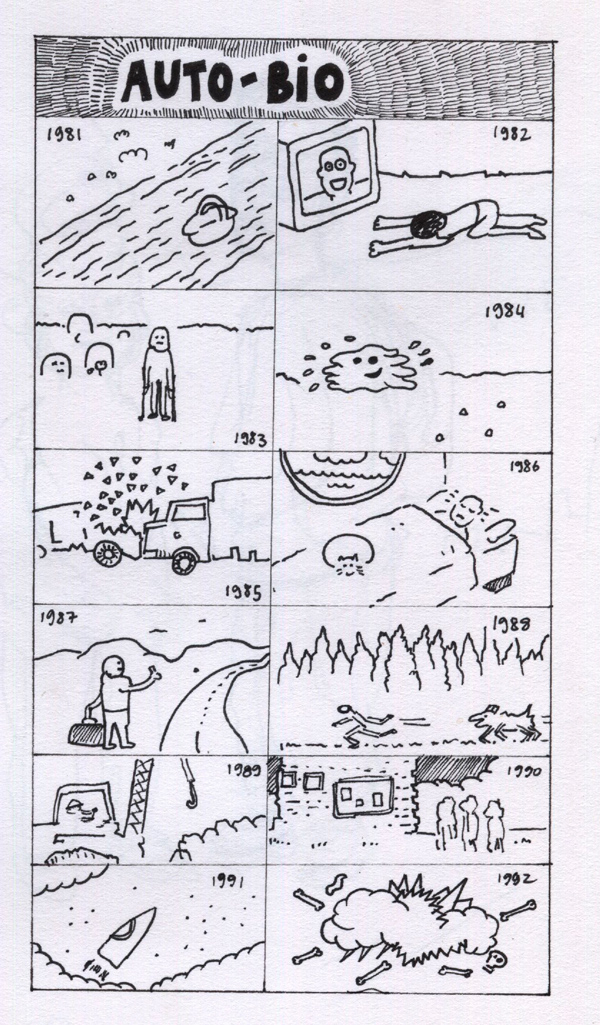 AUTO-BiO
1981
1982
1983
1984
1985
1986
1987
1988
1989
1990
1991
1992